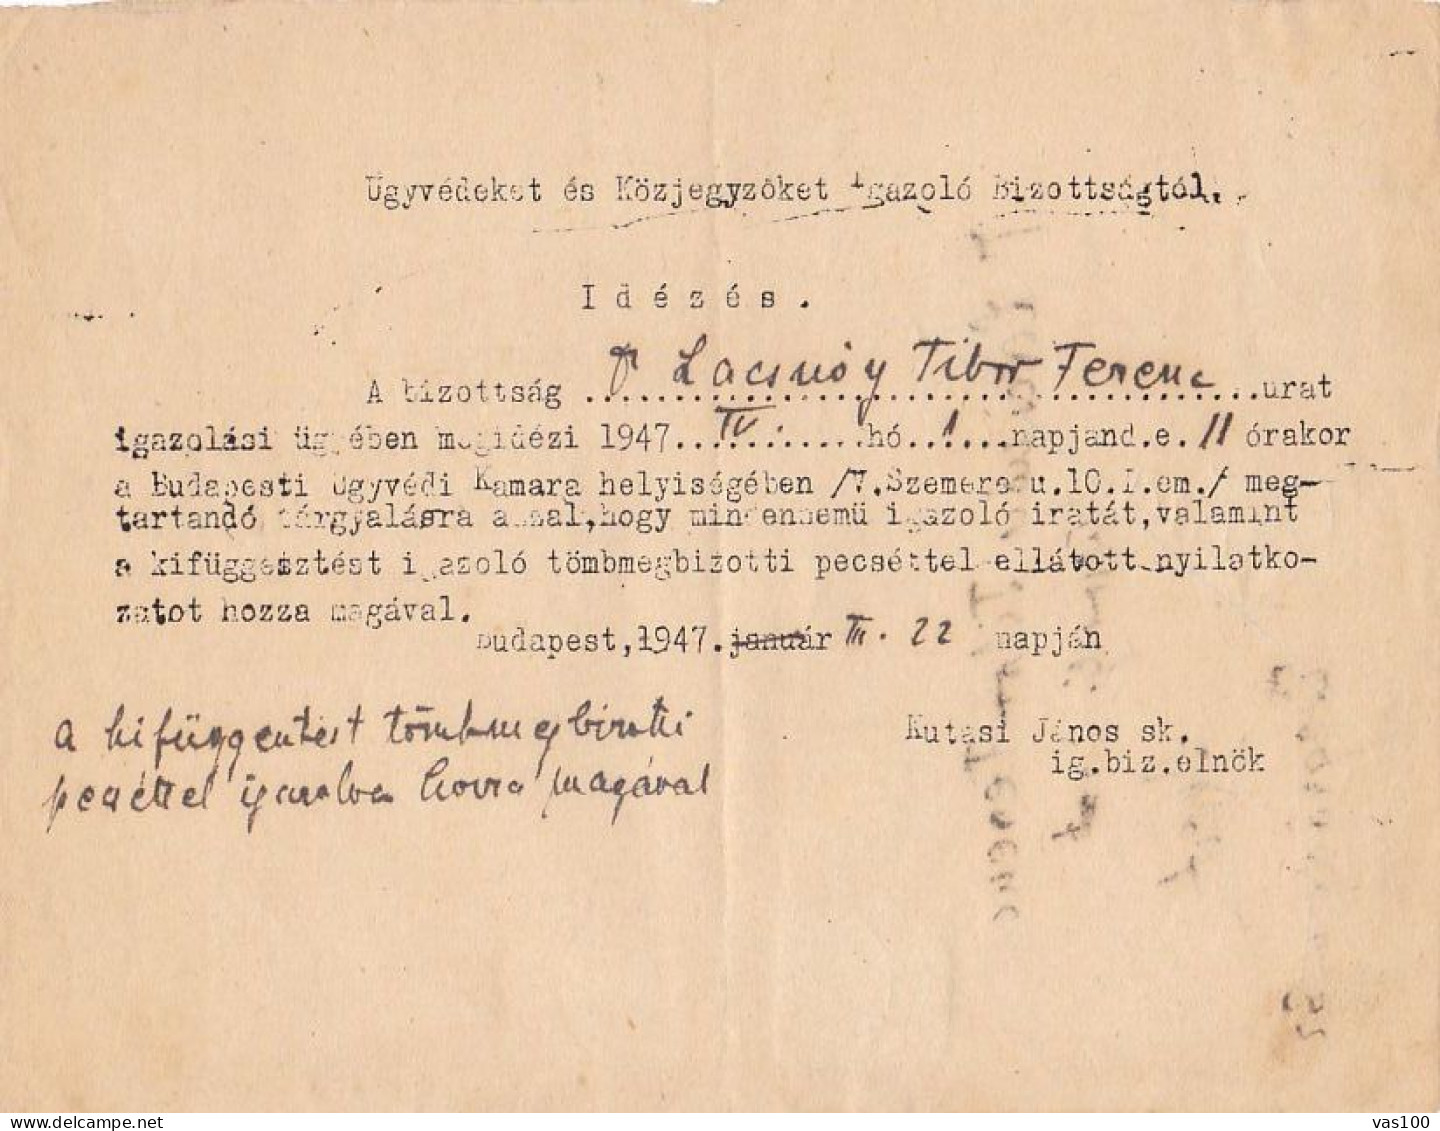 Ügyvédeket és Közjegyzőket Igazoló Bizottságtól.
I d é z é s .
A bizottság ..Dr Lacsnóy Tibor Ferenc..urat
igazolási ügyében megidézi 1947..IV...hó..1...napjand.e. 11 órakor
a Budapesti Ügyvédi Kamara helyiségében /V.Szemere u.10.I.em./ meg-
tartandó tárgyalásra azzal,hogy mindennemü igazoló iratát,valamint
a kifüggesztést igazoló tömbmegbizotti pecséttel ellátott nyilatko-
zatot hozza magával.
Budapest,1947.január III. 22 napján
Kutasi János sk.
ig.biz.elnök
A kifüggesztést tömbmegbizotti
pecséttel igazolva hozza magával
vas100